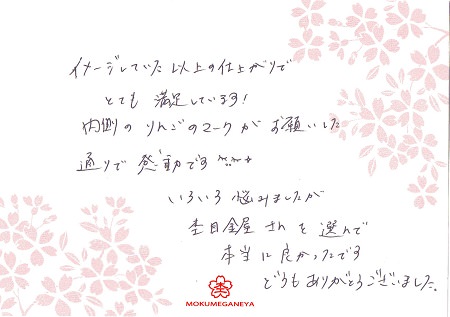 イメージしていた以上の仕上がりで
とても 満足しています!
内側の りんごのマークが お願いした
通りで 感動です
いろいろ 悩みましたが
杢目金屋 さんを 選んで
本当に 良かったです
どうもありがとうございました。
杢
MOKUMEGANEYA